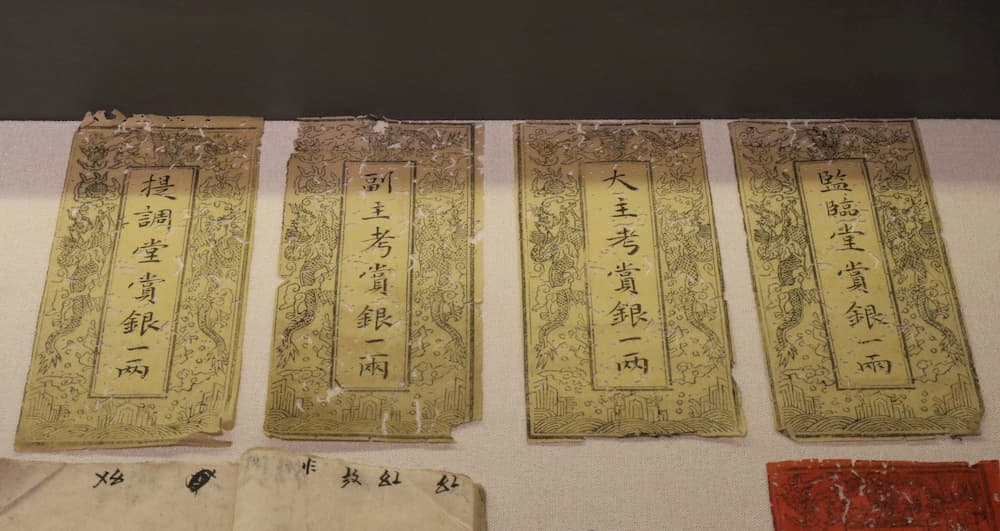 監臨堂賞銀一兩
大主考賞銀一兩
副主考賞銀一兩
提調堂賞銀一兩